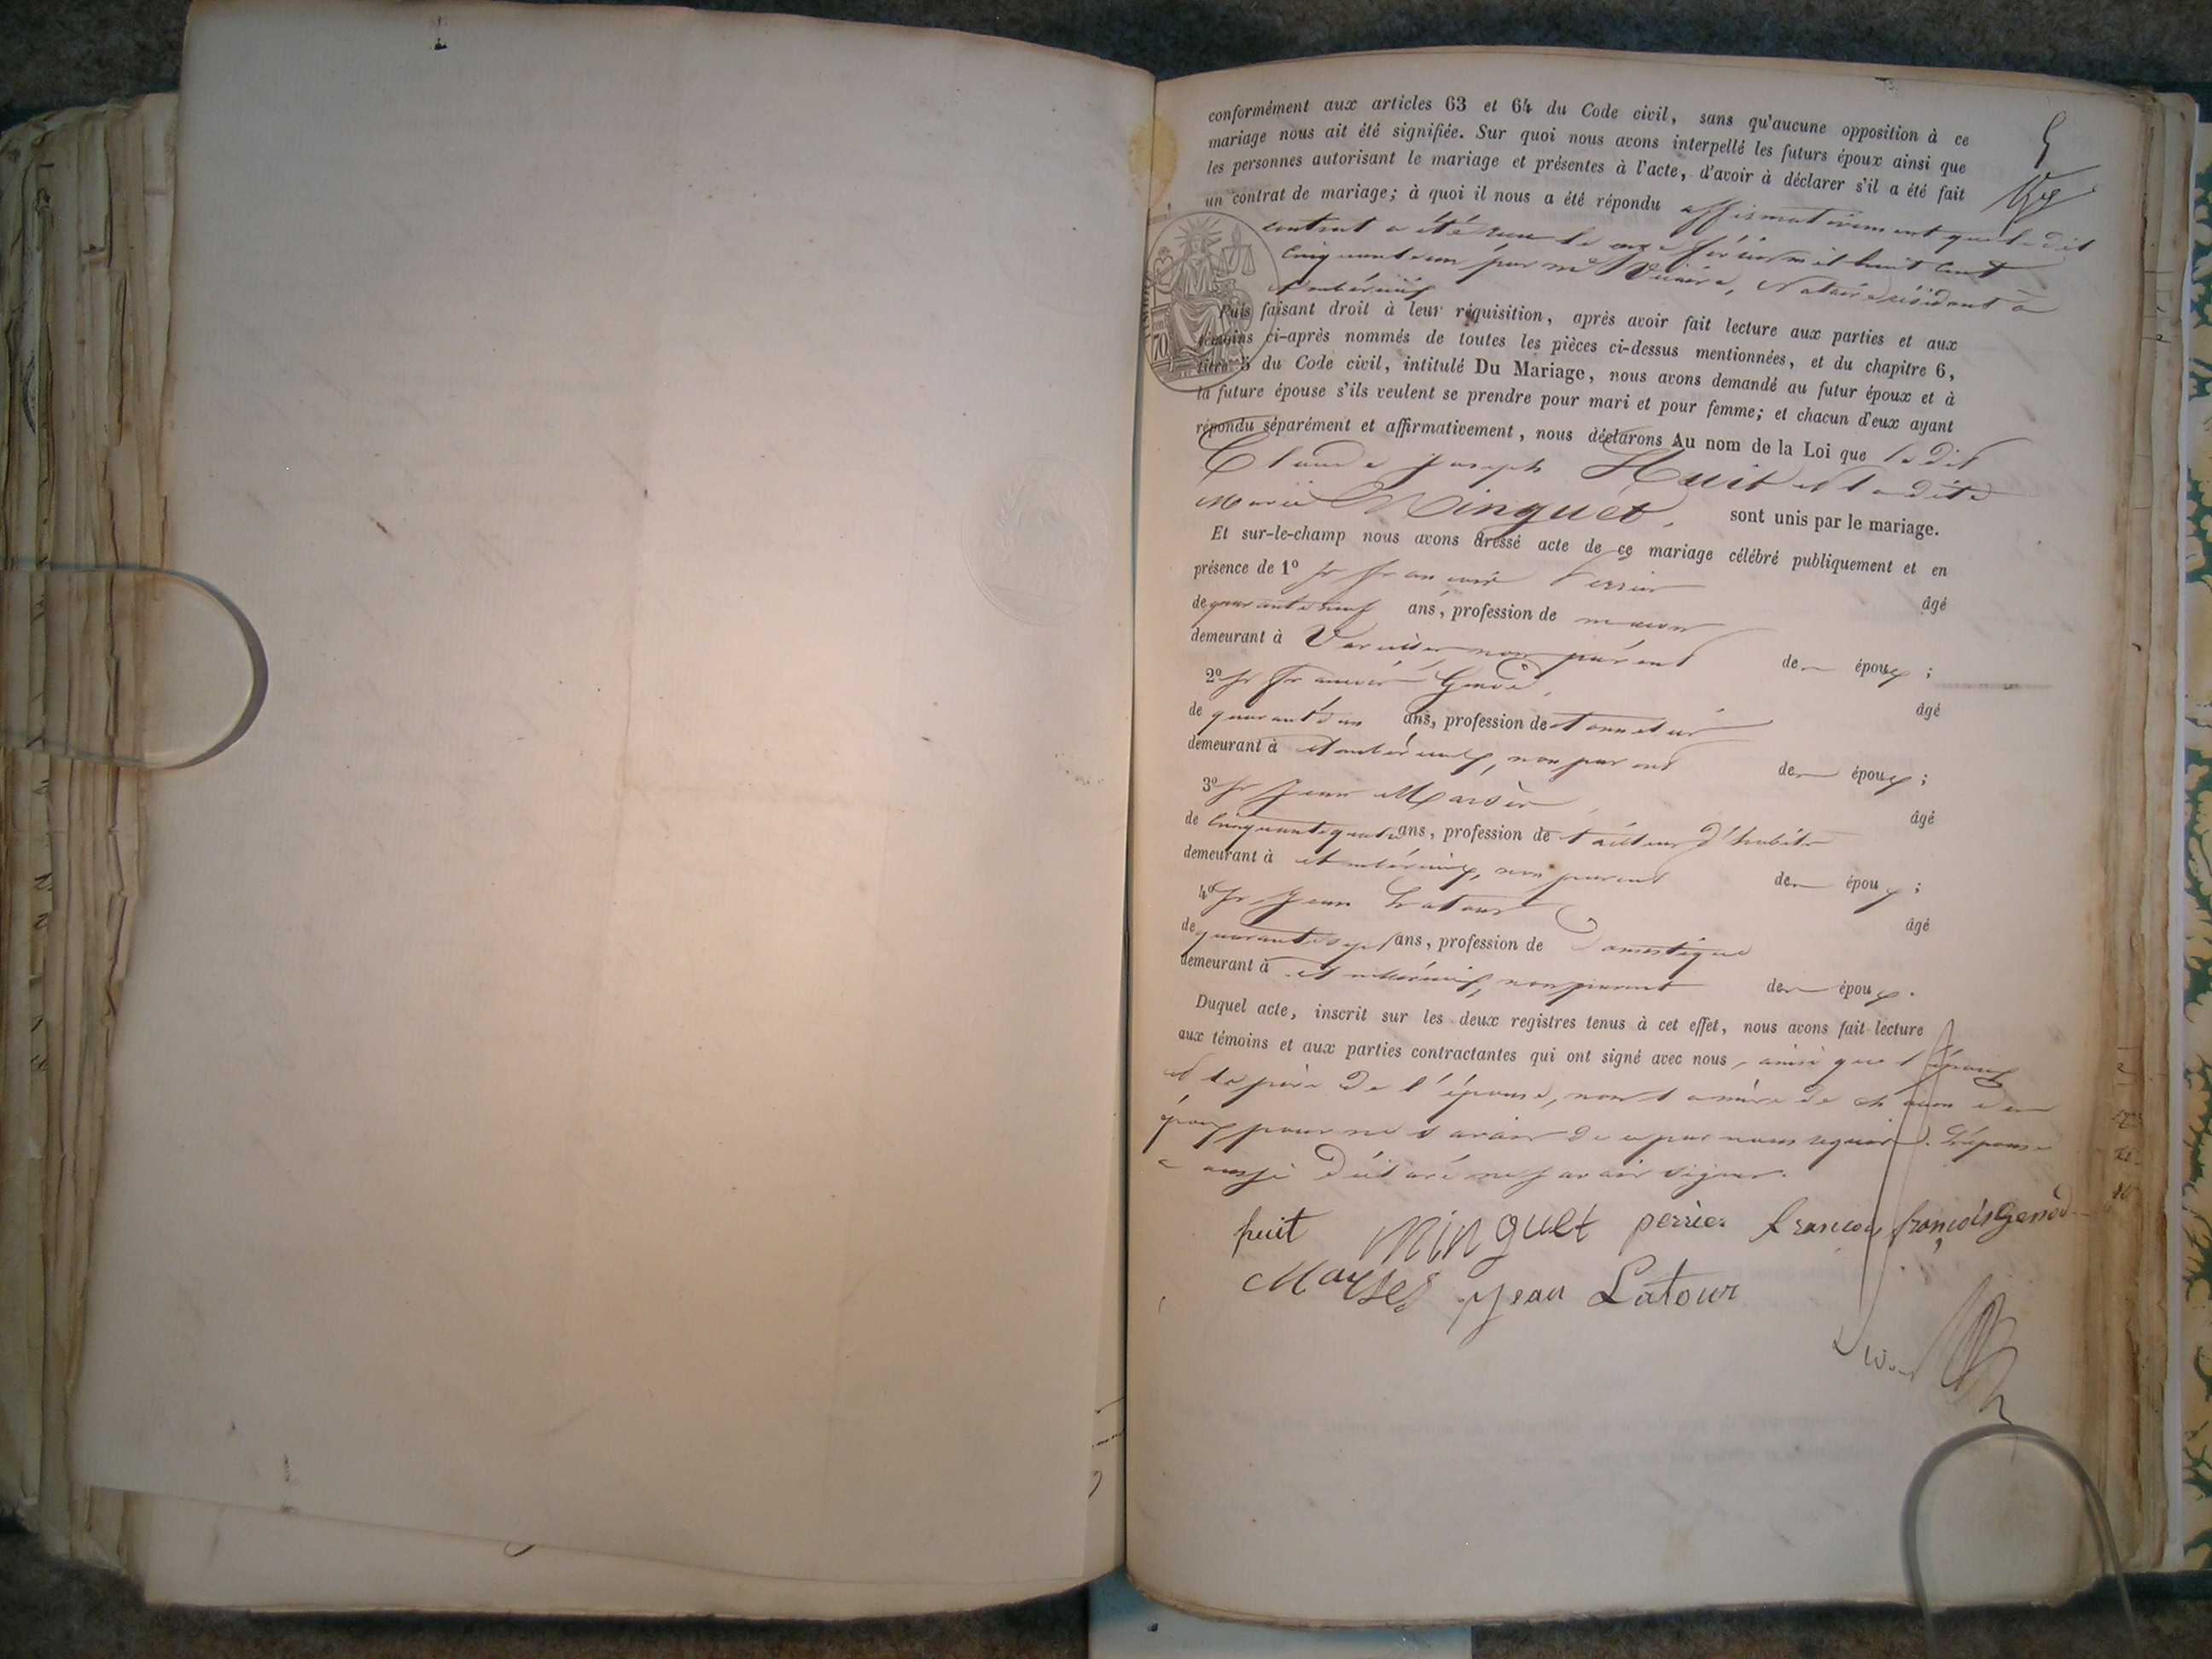 5
conformément aux articles 63 et 64 du Code civil, sans qu'aucune opposition à ce
mariage nous ait été signifiée. Sur quoi nous avons interpellé les futurs époux ainsi que
les personnes autorisant le mariage et présentes à l'acte, d'avoir à déclarer s'il a été fait
un contrat de mariage; à quoi il nous a été répondu affirmativement que le dit
contrat a été reçu le onze février mil huit cent
cinquante un par me notaire résidant à
Ambérieux
Puis faisant droit à leur réquisition, après avoir fait lecture aux parties et aux
témoins ci-après nommés de toutes les pièces ci-dessus mentionnées, et du chapitre 6,
titre 5 du Code civil, intitulé Du Mariage, nous avons demandé au futur époux et à
la future épouse s'ils veulent se prendre pour mari et pour femme; et chacun d'eux ayant
répondu séparément et affirmativement, nous déclarons Au nom de la Loi que le dit
Claude Joseph Huit et la dite
Marie Minguet, sont unis par le mariage.
Et sur-le-champ nous avons dressé acte de ce mariage célébré publiquement et en
présence de 1º Sr François Perrier âgé
de quarante neuf ans, profession de maçon
demeurant à non parent des époux;
2º Sr François Genod, âgé
de quarante un ans, profession de
demeurant à Ambérieux, non parent des époux;
3º Sr Jean Marser, âgé
de cinquante quatre ans, profession de tailleur d'habits
demeurant à Ambérieux, non parent des époux;
4º Sr Jean Latour âgé
de quarante sept ans, profession de Domestique
demeurant à Ambérieux, non parent des époux.
Duquel acte, inscrit sur les deux registres tenus à cet effet, nous avons fait lecture
aux témoins et aux parties contractantes qui ont signé avec nous, ainsi que l'époux
et le père de l'épouse, non la mère de chacun des
époux pour ne savoir de ce par nous requise. L'épouse
a aussi déclaré ne savoir signer.
huit Minguet perrier françois françois Genod
Marser Jean Latour